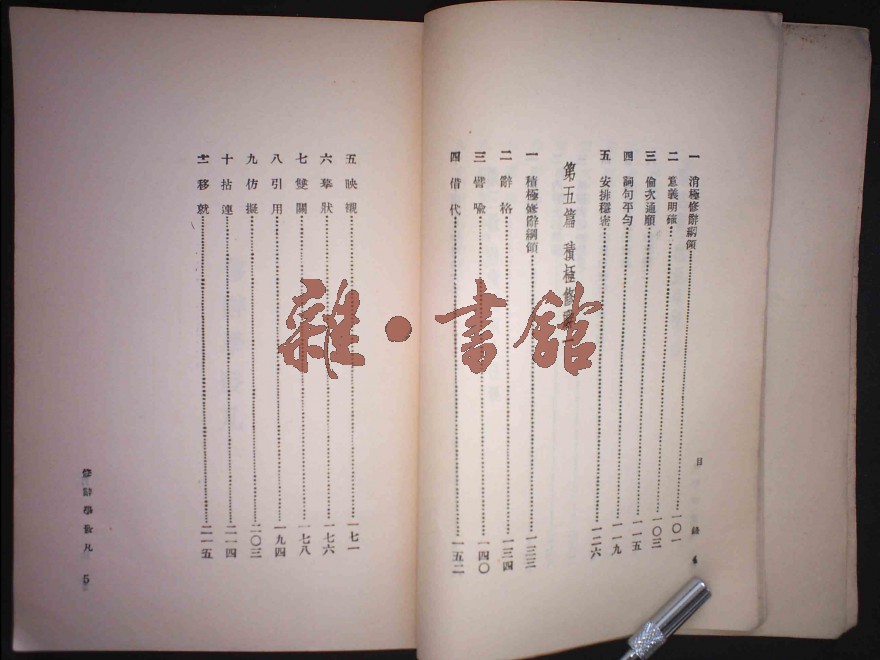 一 消極修辭綱領 一〇一
二 意義明確 一〇三
三 倫次通順 一一五
四 詞句平勻 一一九
五 安排穩密 一二六
第五篇 積極修辭一
一 積極修辭綱領 一三三
二 辭格 一三四
三 譬喻 一四〇
四 借代 一五二
目錄
五 映襯 一七一
六 摹狀 一七六
七 雙關 一七八
八 引用 一九四
九 仿擬 二〇三
十 拈連 二一四
十一 移就 二一五
修辭學發凡 5
雜·書館